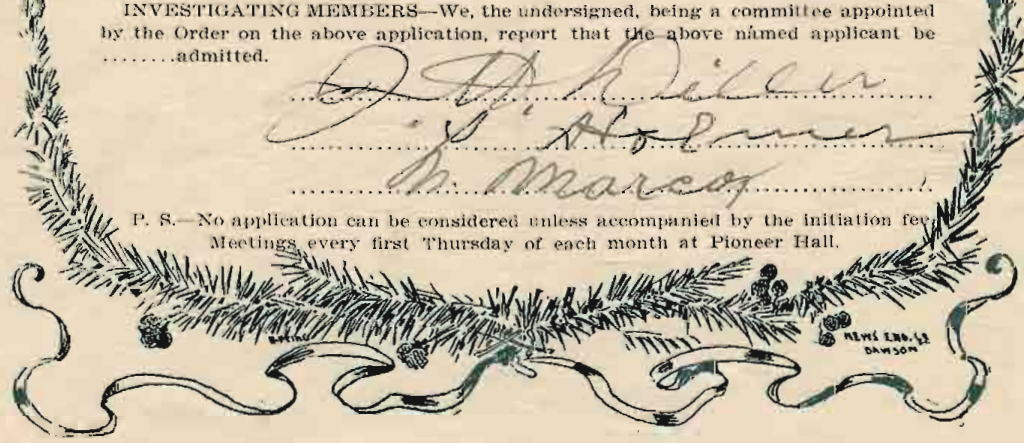 INVESTIGATING MEMBERS—We, the undersigned, being a committee appointed
by the Order on the above application, report that the above named applicant be
........admitted.
D. Dilln
J. S Holmes
N. Marcox
P. S.—No application can be considered unless accompanied by the initiation fee.
Meetings every first Thursday of each month at Pioneer Hall.
NEWS ENG. Co
DAWSON